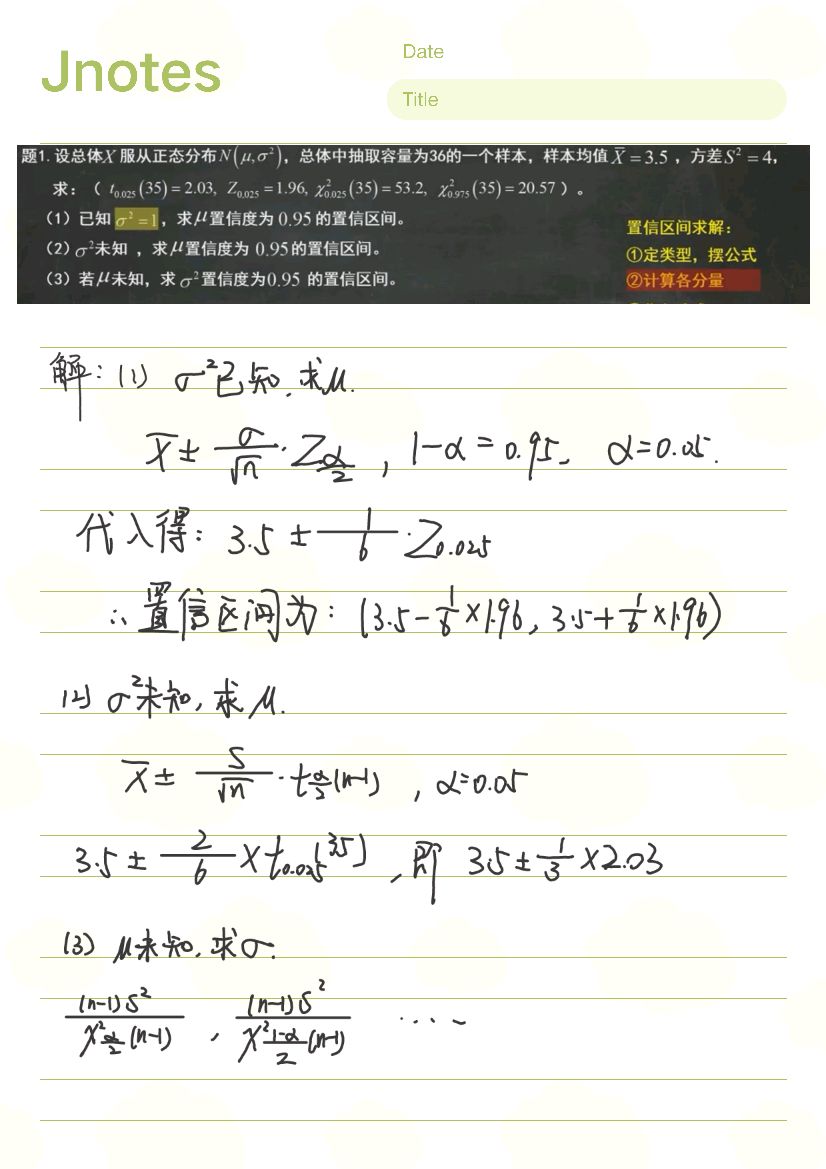 Jnotes
Date
Title
题1. 设总体X 服从正态分布N(μ,σ²)，总体中抽取容量为36的一个样本，样本均值 X̄ = 3.5 ，方差S² = 4，
求：（ t₀.₀₂₅(35) = 2.03, Z₀.₀₂₅ = 1.96, χ²₀.₀₂₅(35) = 53.2, χ²₀.₉₇₅(35) = 20.57 ）。
（1）已知 σ² = 1，求μ置信度为 0.95 的置信区间。
（2）σ²未知 ，求μ置信度为 0.95 的置信区间。
（3）若μ未知，求 σ² 置信度为0.95 的置信区间。
置信区间求解：
①定类型，摆公式
②计算各分量
解：(1) σ²已知，求μ.
X̄ ± σ/√n · Z_{α/2} , 1-α = 0.95, α=0.05.
代入得：3.5 ± 1/6 · Z₀.₀₂₅
∴置信区间为：(3.5 - 1/6 × 1.96, 3.5 + 1/6 × 1.96)
(2) σ²未知，求μ.
X̄ ± S/√n · t_{α/2}(n-1) , α=0.05
3.5 ± 2/6 × t₀.₀₂₅(35) , 即 3.5 ± 1/3 × 2.03
(3) μ未知，求σ.
(n-1)S²/χ²_{α/2}(n-1) , (n-1)S²/χ²_{(1-α)/2}(n-1) ....